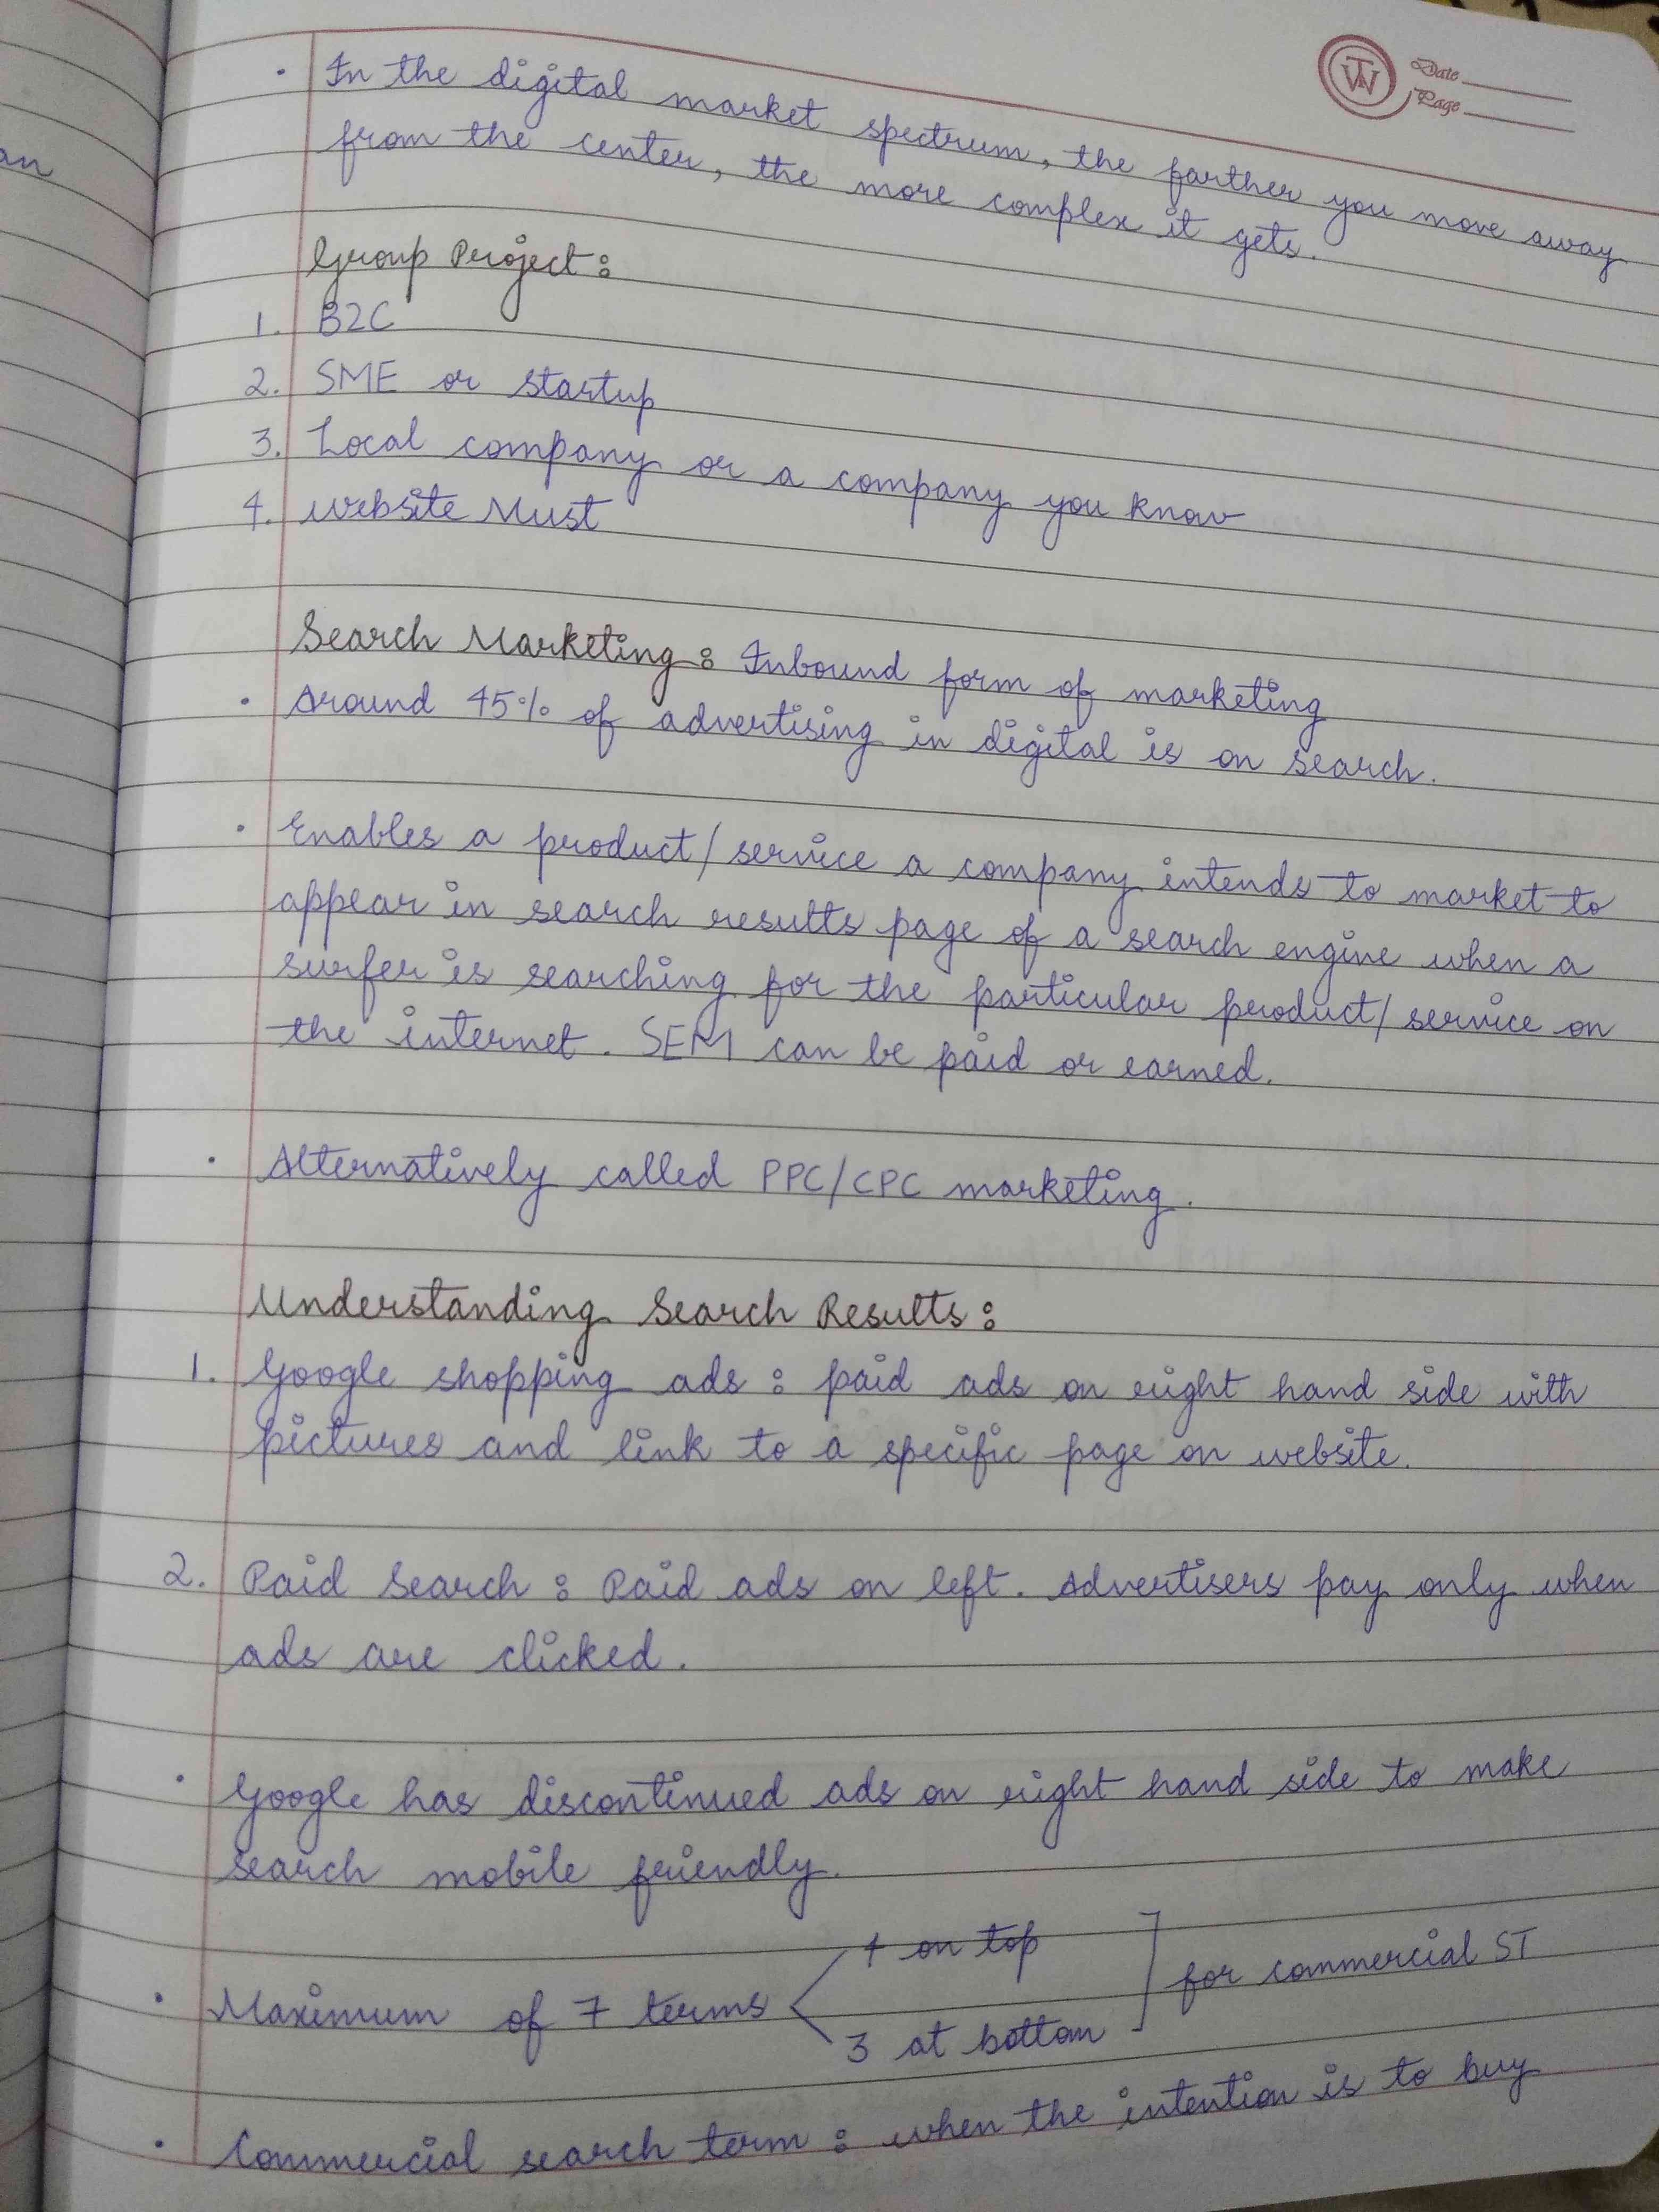 Date
Page
an
• In the digital market spectrum, the farther you move away
from the center, the more complex it gets.
Group Project:
1. B2C
2. SME or startup
3. Local company or a company you know
4. Website Must
Search Marketing: Inbound form of marketing
• Around 45% of advertising in digital is on search.
• Enables a product/service a company intends to market to
appear in search results page of a search engine when a
surfer is searching for the particular product/service on
the internet. SEM can be paid or earned.
• Alternatively called PPC/CPC marketing.
Understanding Search Results:
1. Google shopping ads: paid ads on right hand side with
pictures and link to a specific page on website.
2. Paid Search: Paid ads on left. Advertisers pay only when
ads are clicked.
• Google has discontinued ads on right hand side to make
search mobile friendly.
4 on top
• Maximum of 7 terms < ] for commercial ST
3 at bottom
• Commercial search term: when the intention is to buy